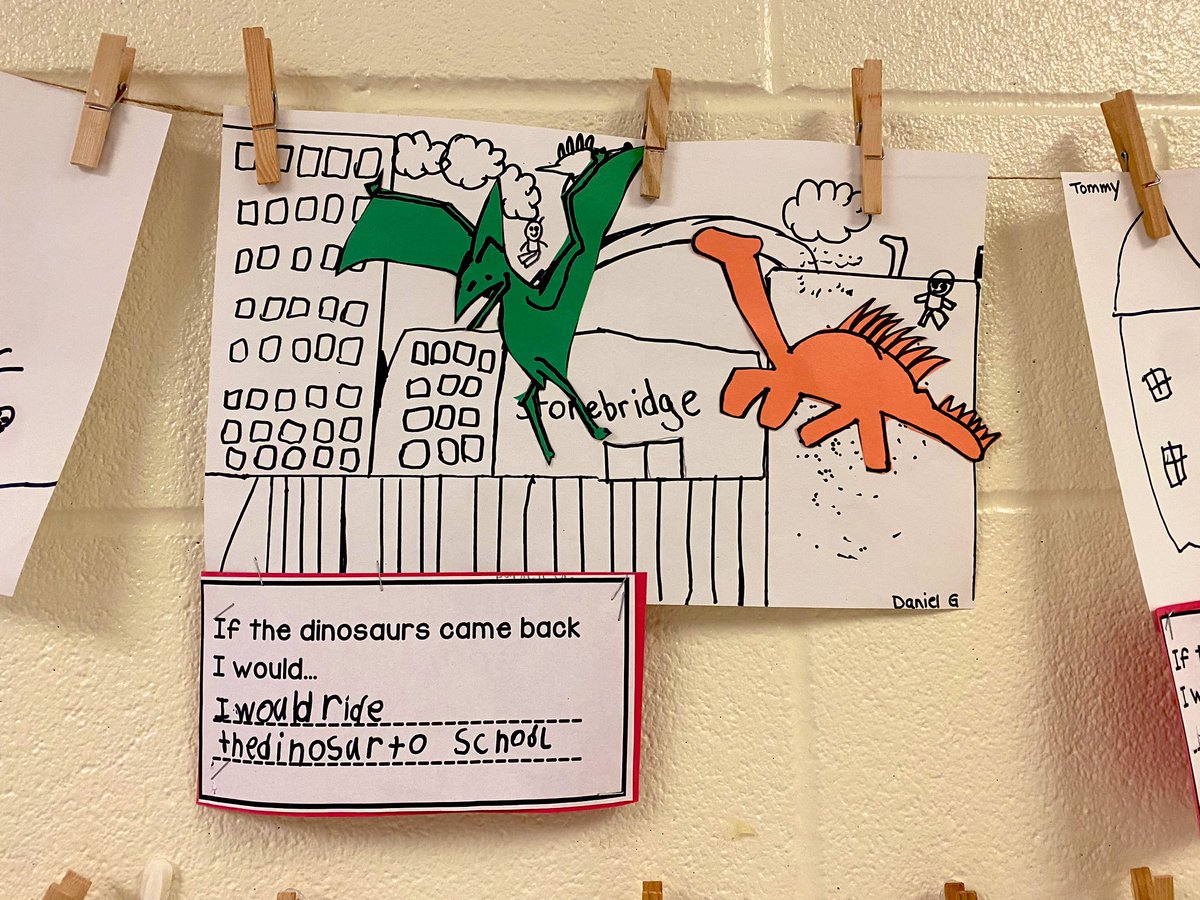 Tommy
Stonebridge
Daniel G
If the dinosaurs came back
I would...
I would ride
the dinosur to School
If
I w